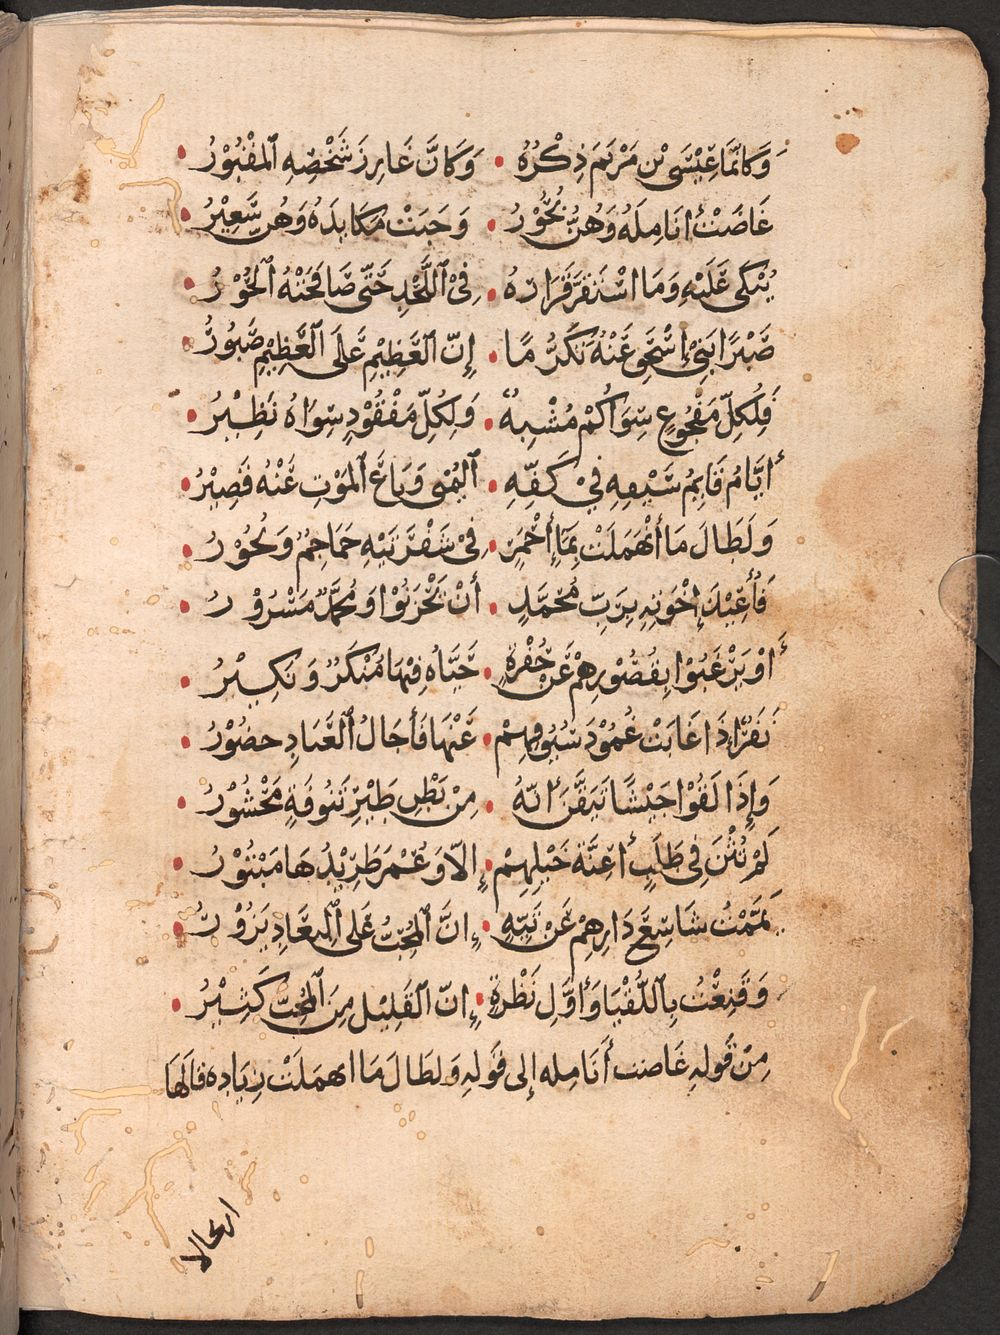 وَكَأنَّمَا عِيْسَى بْن مَرْيَم ذِكْرُهُ • وَكَانَّ عَازِرَ شَخْصِهِ المَقْبُوْرُ •
غَاضَتْ أنَامِلَهُ وَهُنَّ بُحُوْرُ • وَخَبَتْ مَكَايِدَهُ وَهُنَّ سَعِيْرُ •
يُبْكَى عَلَيْهِ وَمَا اسْتَقَرَّ قَرَارُهُ • فِيْ اللَّحْدِ حَتَّى صَافَحَتْهُ الحُوْرُ •
صَبْرًا بَنِيْ إسْحَقَ عَنْهُ تَكَرُّمًا • إنَّ العَظِيْمِ عَلَى العَظِيْمِ صَبُوْرُ •
فَلِكُلِّ مَفْجُوْعٍ سِوَاكُمْ مُشْبِهٌ • وَلِكُلِّ مَفْقُوْدٍ سِوَاهُ نَظِيْرُ •
أيَّامُ قَايِمُ سَيْفِهِ فِيْ كَفِّهِ • اليُمْنَى وَبَاعَ المَوْتِ عَنْهُ قَصِيْرُ •
وَلَطَالَ مَا أنْهَمَلَتْ بِمَاءٍ أحْمَرٍ • فِيْ شَفْرَتَيْهِ جَمَاجِمٌ وَنُحُوْرُ •
فَأُعِيْذُ إخْوَتِهِ بِرَبِّ مُحَمَّدٍ • أنْ يَحْزَنُوْا وَمُحَمَّدٌ مَسْرُوْرُ •
أوْ يَرْغَبُوْا بِقُصُوْرِهِمْ عَنْ حُفْرَةٍ • حَيَّاهُ فِيْهَا مُنْكَرٌ وَنَكِيْرُ •
نَفَرٌ إذَا غَابَتْ غُمُوْدَ سُيُوْفِهِمْ • عَنْهَا فَأجَالُ العَبَادِ حضُوْرُ •
وَإذَا لَقُوْا جَيْشًا تَيَقَّنَ أنَّهُ • مِنْ بَطْنِ طَيْرِ تَنُوفَةٍ مَحْشُوْرُ •
لَمْ تُثْنَ فِي طَلَبٍ أعِنَّة خَيْلِهِمْ • إلاّ وَعُمْرَ طَرِيْدُهَا مَبْتُوْرُ •
يَمَّمْتُ شَاسِعَ دَارِهِمْ عَنْ نِيَّةٍ • إنَّ المُحِبَّ عَلَى البِعَادِ يَزُوْرُ •
وَقَنِعْتُ بِاللُّقْيَا وَأوَّلِ نَظْرَةٍ • إنّ القَلِيْل مِنَ المُحِبِّ كَثِيْرُ •
مِنْ قَولِهِ غَاضت أنَامِله إلى قَولِهِ وَلطَالَ مَا انهمَلَتْ زيَاده قالهَا
ارتجالا